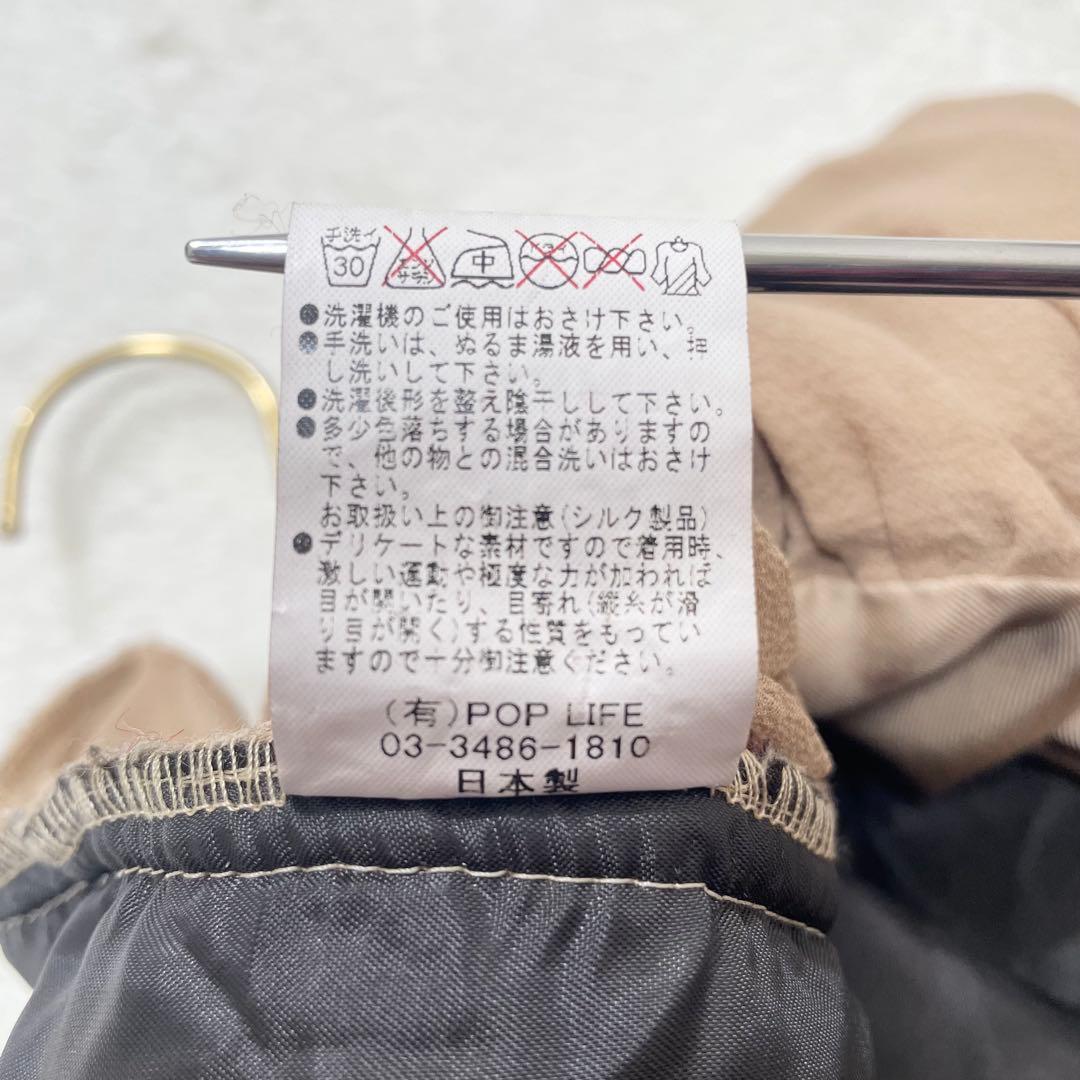 手洗イ
30 エンソ サラシ 中 ドライ
●洗濯機のご使用はおさけ下さい。
●手洗いは、ぬるま湯液を用い、押
し洗いして下さい。
●洗濯後形を整え陰干しして下さい。
●多少色落ちする場合がありますの
で、他の物との混合洗いはおさけ
下さい。
お取扱い上の御注意(シルク製品)
●デリケートな素材ですので着用時、
激しい運動や極度な力が加われば
目が開いたり、目寄れ(縦糸が滑
り目が開く)する性質をもってい
ますので十分御注意ください。
(有)POP LIFE
03-3486-1810
日本製